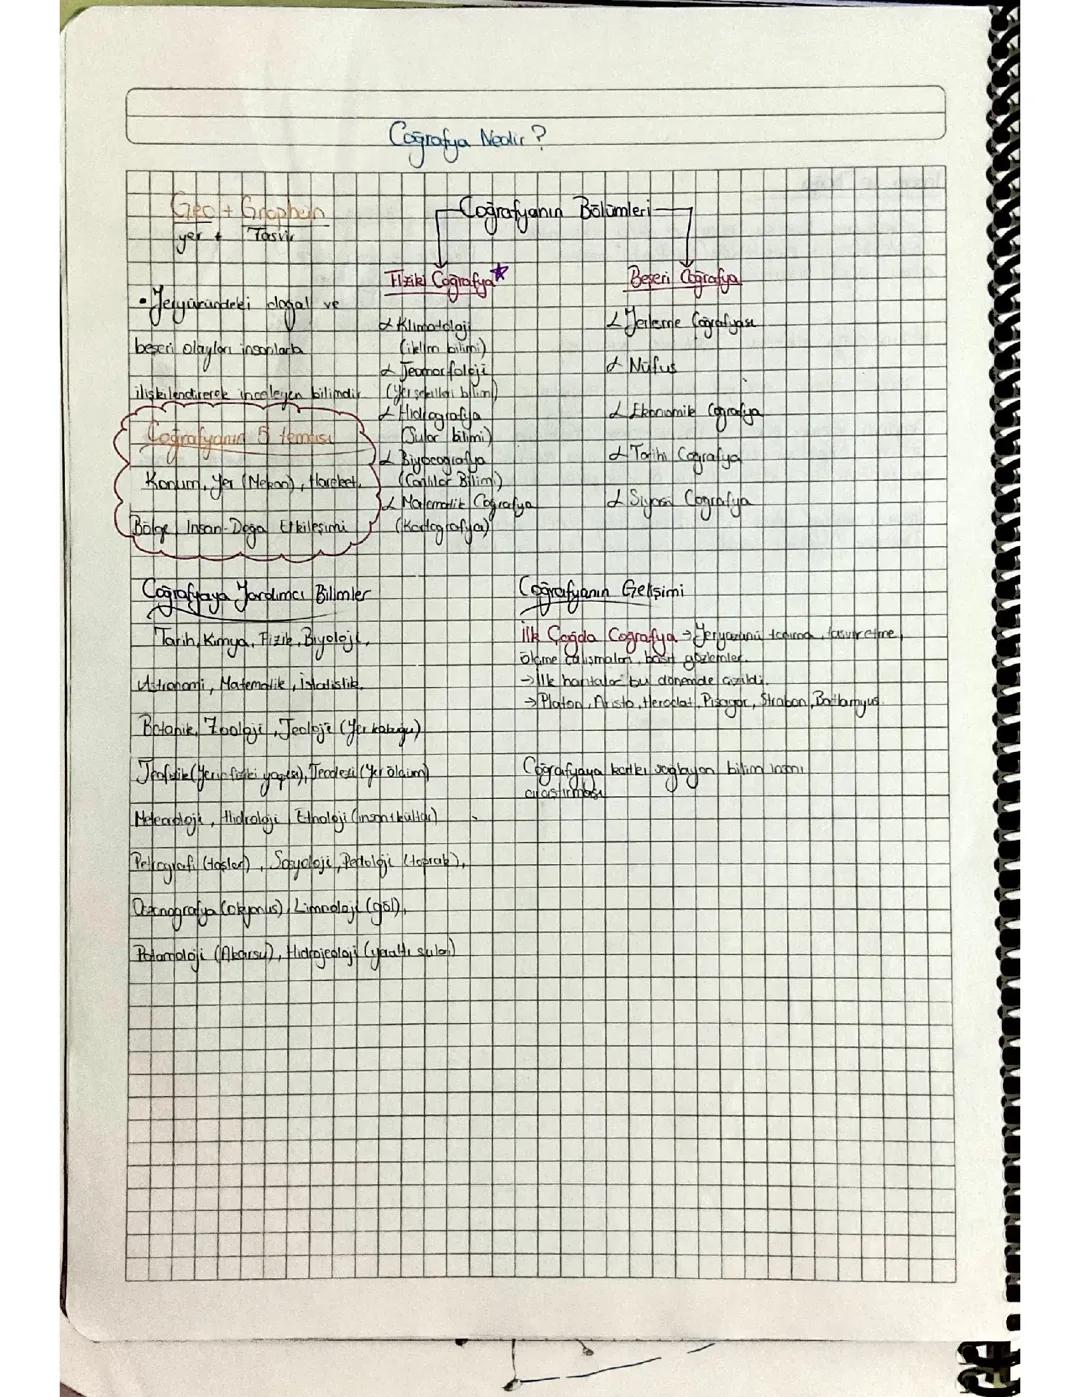 Coğrafya Nedir ?
Geo + Graphein
yer + Tasvir
• Yeryüzündeki doğal ve
beşeri olayları insanlarla
ilişkilendirerek inceleyen bilimdir
Coğrafyanın 5 teması
Konum, Yer (Mekan), Hareket,
Bölge, İnsan-Doğa Etkileşimi
Coğrafyanın Bölümleri
Fiziki Coğrafya
Klimatoloji
(iklim bilimi)
Jeomorfoloji
(Yerşekilleri bilimi)
Hidrografya
(Sular bilimi)
Biyocoğrafya
(Canlılar Bilimi)
Matematik Coğrafya
(Kartografya)
Beşeri Coğrafya
Yerleşme Coğrafyası
Nüfus
Ekonomik Coğrafya
Tarihi Coğrafya
Siyasi Coğrafya
Coğrafyaya Yardımcı Bilimler
Tarih, Kimya, Fizik, Biyoloji,
Astronomi, Matematik, İstatistik,
Botanik, Zooloji, Jeoloji (Yer kabuğu)
Jeofizik (Yerin fiziki yapısı), Jeodezi (Yer ölçüm)
Meteoroloji, Hidroloji, Etnoloji (insan ı kültür)
Petrografi (taşlar), Sosyoloji, Pedoloji (toprak),
Oşinografya (okyanus), Limnoloji (göl),
Potamoloji (Akarsu), Hidrojeoloji (yeraltı suları)
Coğrafyanın Gelişimi
İlk Çağda Coğrafya → Yeryüzünü tanıma, tasvir etme,
ölçme çalışmaları, basit gözlemler.
→ İlk haritalar bu dönemde çizildi.
→ Platon, Aristo, Herodot, Pisagor, Strabon, Batlamyus
Coğrafyaya katkı sağlayan bilim insanı
araştırması